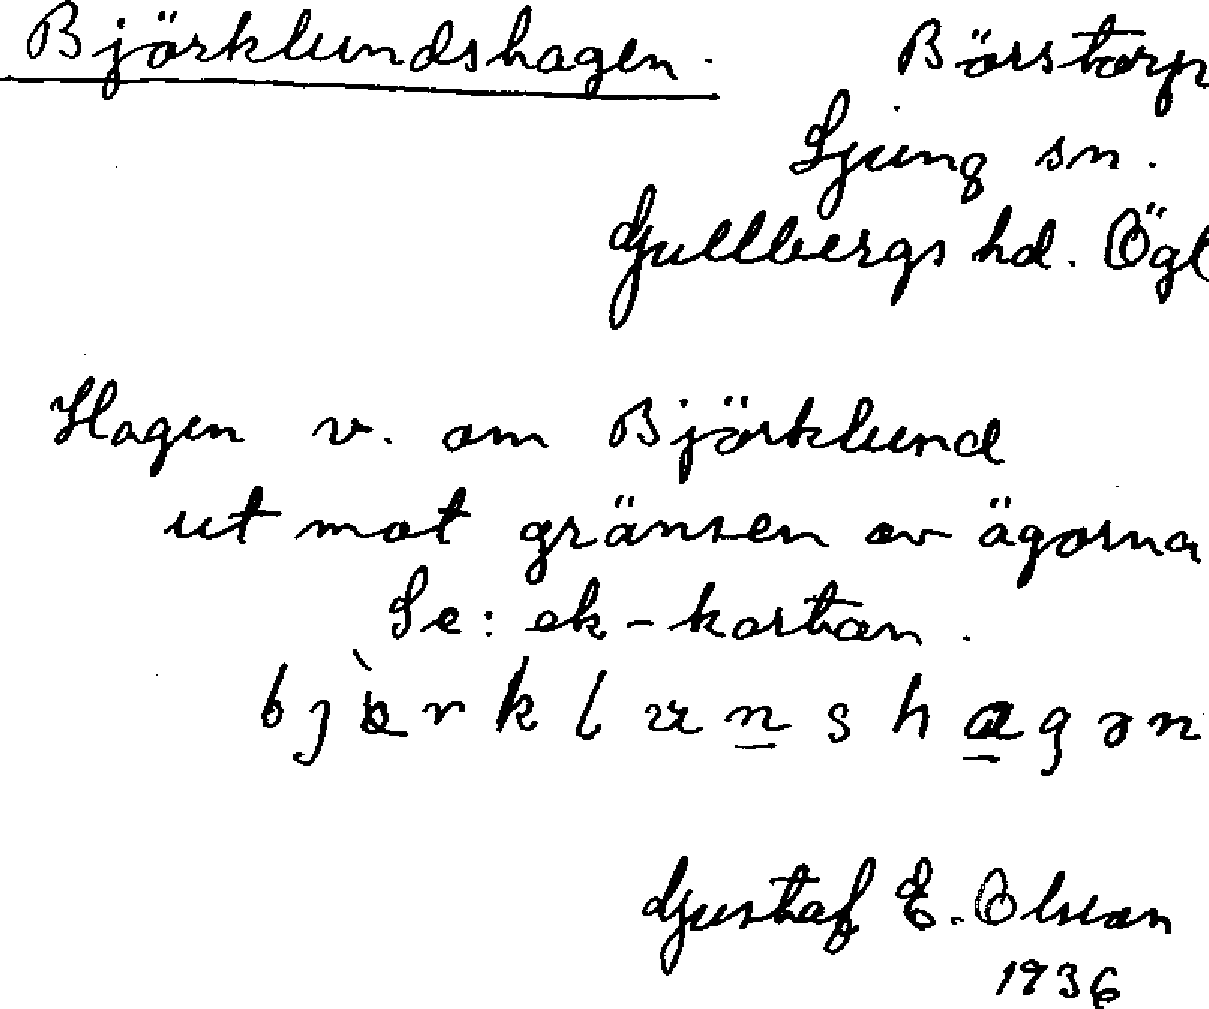 Björklundshagen. Börstorp
Ljung sn.
Gullbergs hd. Ögl
Hagen v. om Björklund
ut mot gränsen av ägorna
Se: ek-kartan.
Gustaf E. Olsson
1936